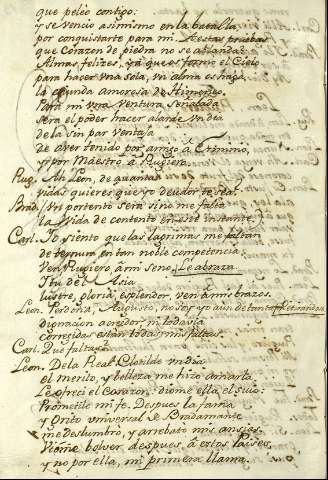 que peleò contigo:
y se venciò asimismo en la batalla,
por conquistarte para mi. A estas pruebas
que Corazon de piedra no se ablanda?
Almas felizes, ya que os formò el Cielo
para hacer una sola, mi alma os haga
la coyunda amorosa de Himeneo.
Para mi una ventura señalada
serà el poder hacer alarde un dia
de la sin par ventaja
de aver tenido por amigo à
y por Maestro à Rugiero.
Rug. Ah Leon, de quantas
vidas quieres que yo deudor te sea!
Brad. Un portento serà sino me falta
la Vida de contento en este instante.
Carl. Yo siento que las lagrimas me faltan
de ternura en tan noble competencia:
Ven Rugiero, à mi seno, Le abraza
Y tu de l' Asia
lustre, gloria, esplendor, ven à mis brazos.
Leon. Perdona, Augusto, no soy yo aun de tanta Retirandose
dignacion acredor, ni todavia
corregidas estàn todas mis faltas.
Carl. Què faltas?
Leon. De la Real Clotilde un dia
el merito, y belleza me hizo amarla.
Le ofreci el Corazon: diòme ella, el suio:
Prometile mi fe. Despues la fama
y grito universal de Bradamante
me deslumbrò, y arrebatò mis ansias.
Vicme bolver despues à estos Paises,
y no por ella, mi primera llama.